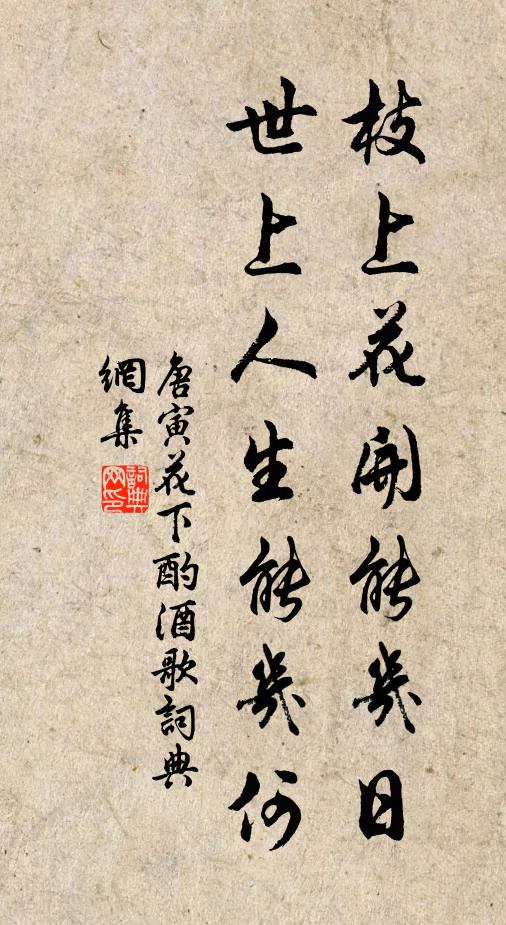 枝上花開能幾日
世上人生能幾何
唐寅花下酌酒歌詞典
網集
詞典
网印